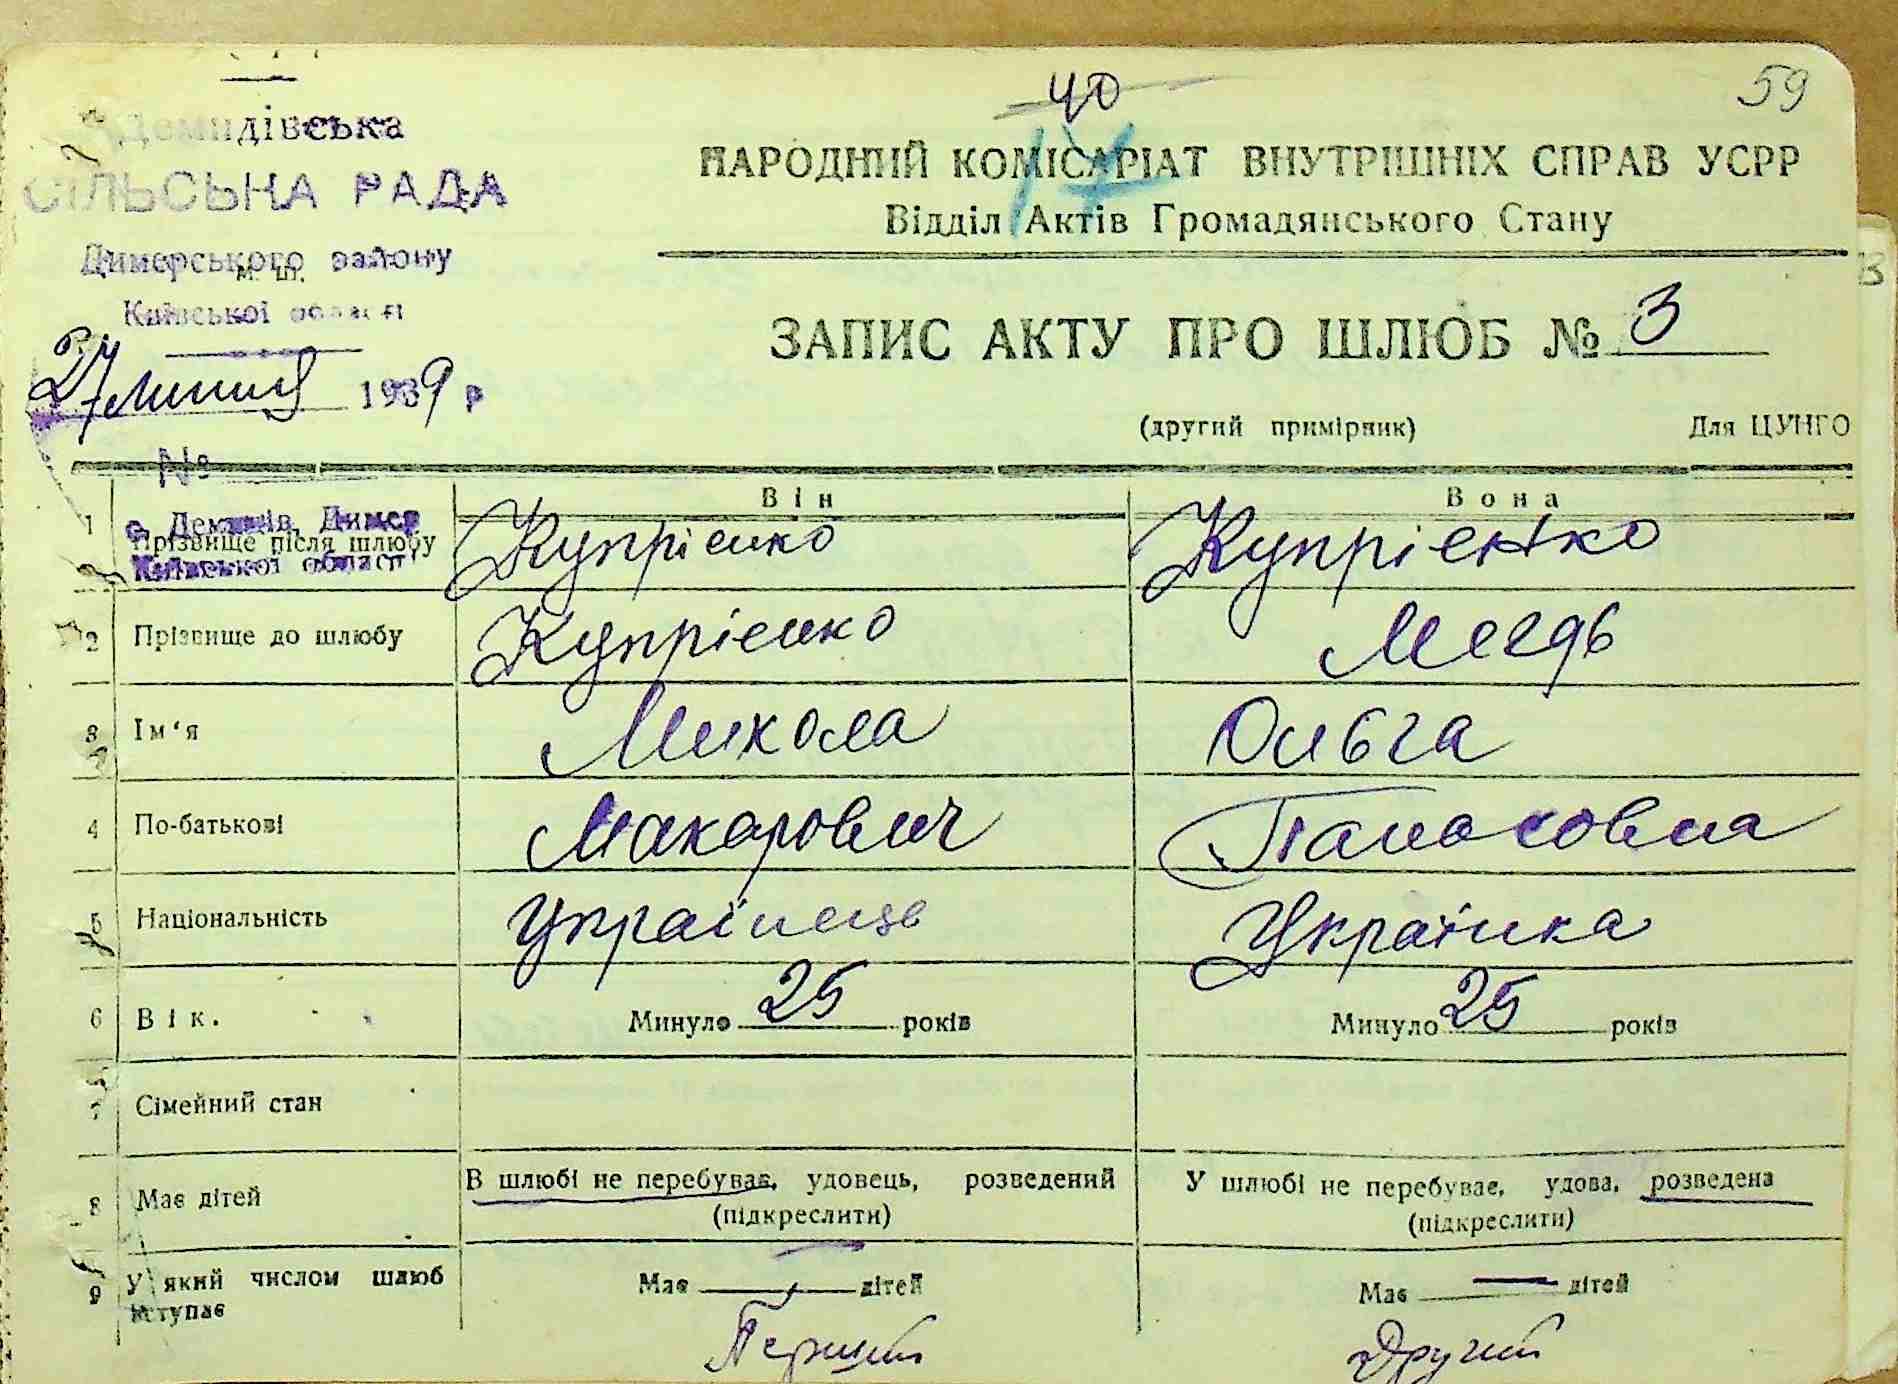 40
59
Демидівська
СІЛЬСЬКА РАДА
Димерського району
м. ш.
Київської області
27 липня 1939 р
№
НАРОДНИЙ КОМІСАРІАТ ВНУТРІШНІХ СПРАВ УСРР
Відділ Актів Громадянського Стану
ЗАПИС АКТУ ПРО ШЛЮБ № 3
(другий примірник) Для ЦУНГО
Він Вона
с. Демидів, Димер
1 Прізвище після шлюбу Купрієнко Купрієнко
Київської області
2 Прізвище до шлюбу Купрієнко Мегдь
3 Ім'я Микола Ольга
4 По-батькові Макарович Панасовна
5 Національність Українець Українка
6 Вік. Минуло 25 років Минуло 25 років
7 Сімейний стан
8 Має дітей В шлюбі не перебуває, удовець, розведений У шлюбі не перебуває, удова, розведена
(підкреслити) (підкреслити)
9 У який числом шлюб вступає Має — дітей Має — дітей
Перший Другий